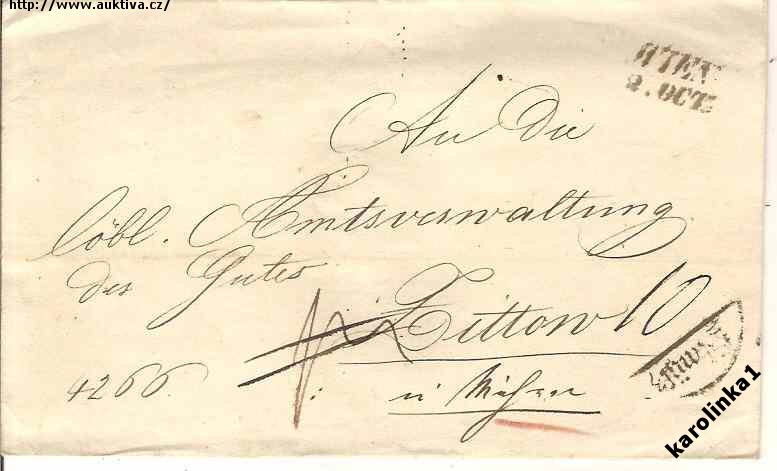 http://www.auktiva.cz/
WIEN
2. OCT.
An die
löbl. Amtsverwaltung
des Gutes
Zittow 10
4266.
in Mähren
karolinka1